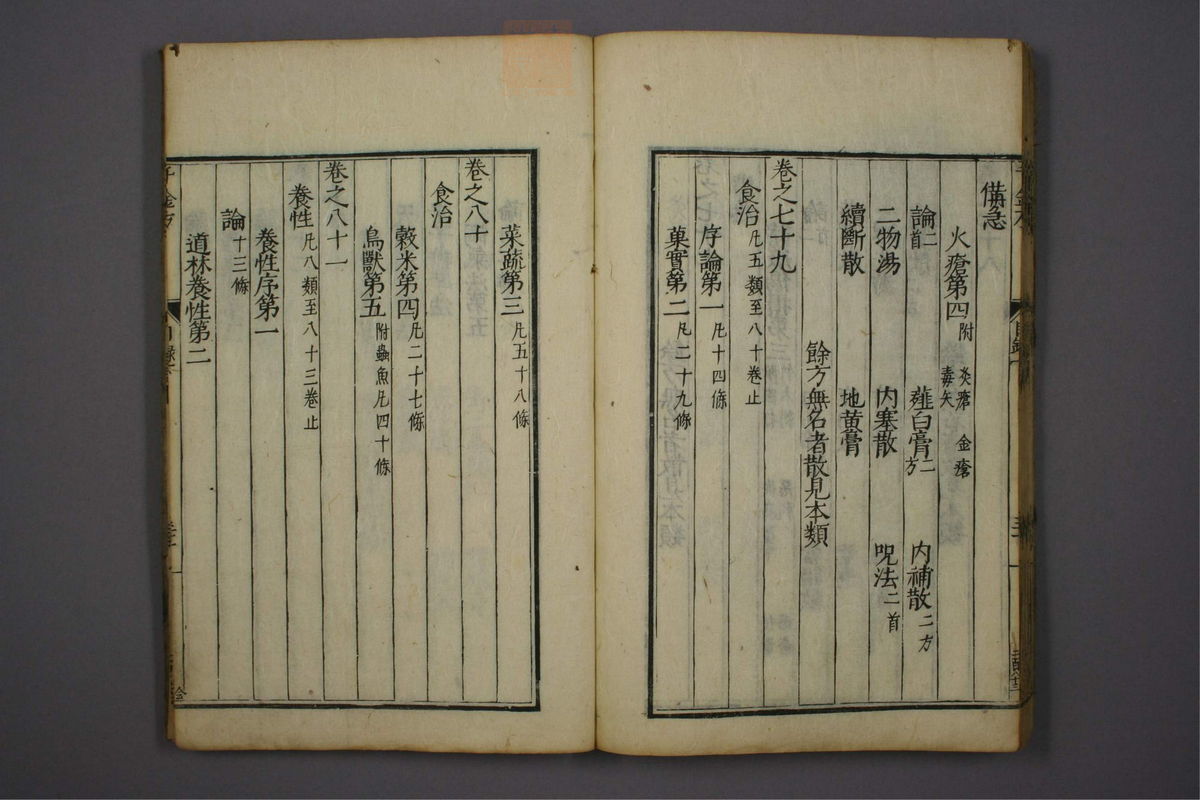 備急
火瘡第四 附 灸瘡 金瘡 毒矢
論二首 薤白膏二方 内補散二方
二物湯 内塞散 呪法二首
續斷散 地黄膏
餘方無名者散見本類
卷之七十九
食治凡五類至八十卷止
序論第一凡十四條
菓實第二凡二十九條
菜蔬第三凡五十八條
卷之八十
食治
穀米第四凡二十七條
鳥獸第五附蟲魚凡四十條
卷之八十一
養性凡八類至八十三卷止
養性序第一
論十三條
道林養性第二
千金方